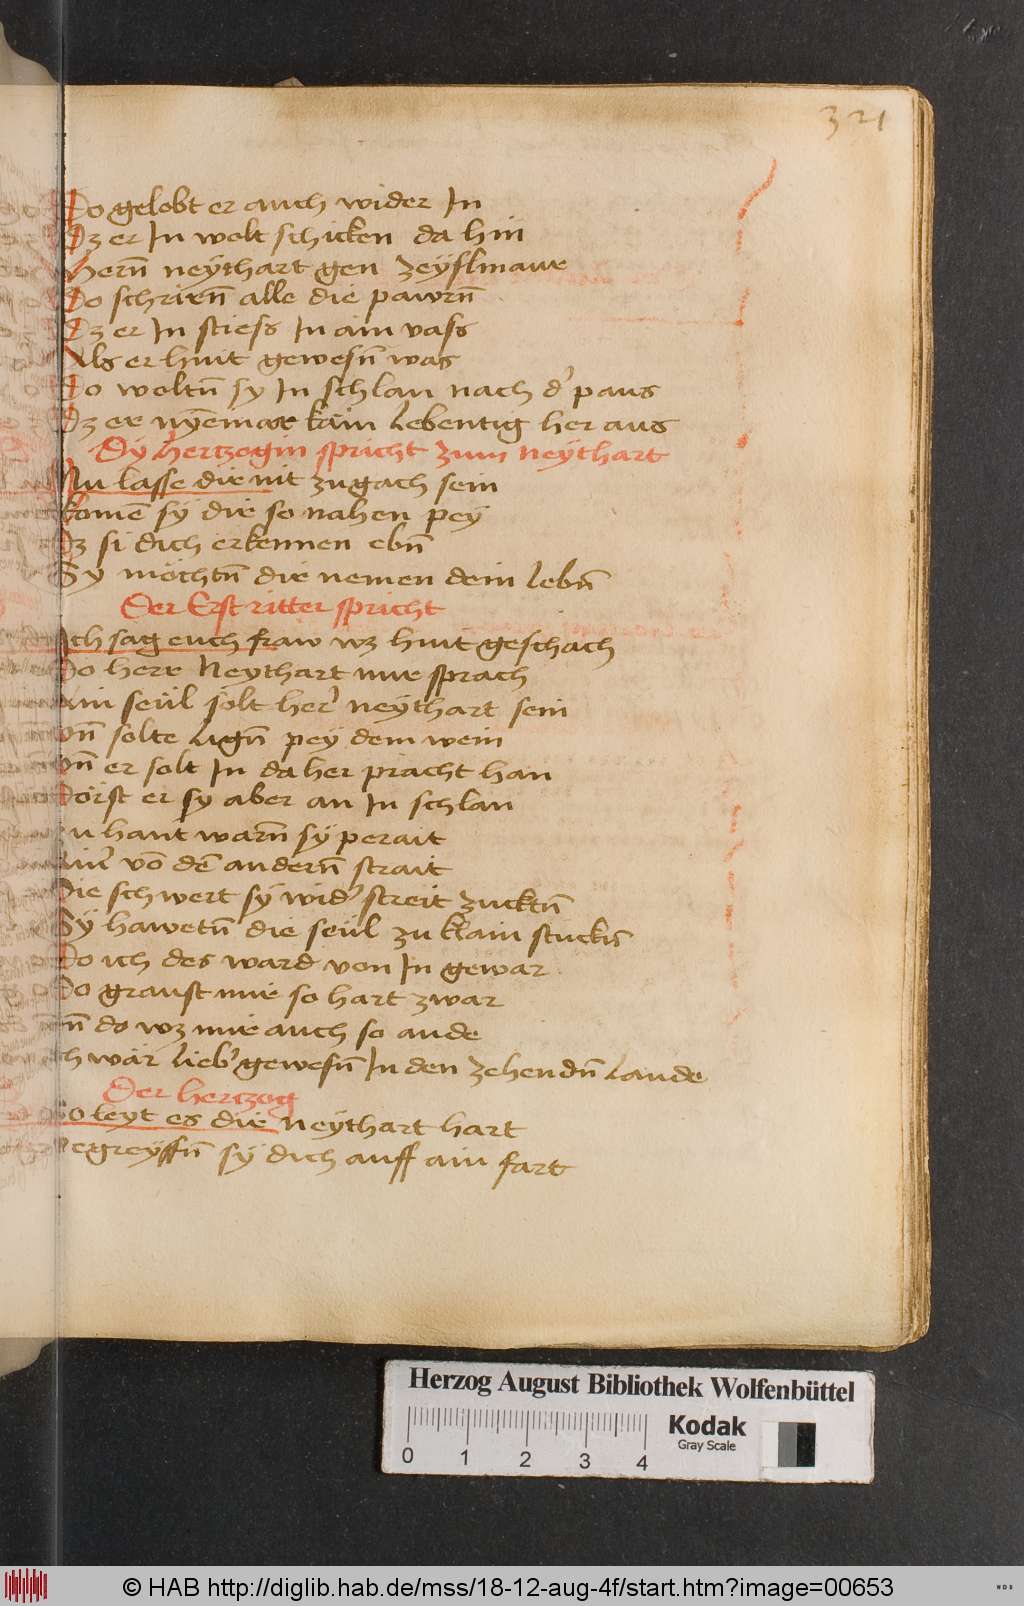 321
Do gelobt er auch wider In
Dz er In wolt schicken da hin
Hern̄ neÿthart gen zeÿslmaur
Do schrien̄ alle die pawrn̄
Dz er In stiess In ain vass
Als er hiut gewesn̄ was
Do woltn̄ sy In schlan nach d' paus
Dz er nyem̄ar käm lebentig her aus
Dÿ hertzogin spricht zum neÿthart
Nu lasse die nit zu gach sein
komē sÿ die so nahen peÿ
Dz si dich erkennen ebn̄
Sy möchtn̄ die nemen dein lebn̄
Der Erst ritter spricht
Ich sag euch fraw wz hiut geschach
Do herr Neythart mir sprach
Ain seül solt her' neÿthart sein
Vn̄ solte lign̄ peÿ dem wein
Vn̄ er solt In da her pracht han
Dörst er sy aber an In schlan
zu hant warn̄ sÿ perait
Ain' vō dē andern̄ strait
Die schwert sÿ wid' streit zucktn̄
Sÿ hawetn̄ die seül zu klain stuckn̄
Do ich des ward von In gewar
Do graust mir so hart zwar
Vn̄ do wz mir auch so ande
Ich wär lieb' gewesn̄ In den zehendn̄ lande
Der hertzog
So leyt es die neÿthart hart
Begreÿffn̄ sÿ dich auff ain fart
Herzog August Bibliothek Wolfenbüttel
Kodak
Gray Scale
0 1 2 3 4
© HAB http://diglib.hab.de/mss/18-12-aug-4f/start.htm?image=00653